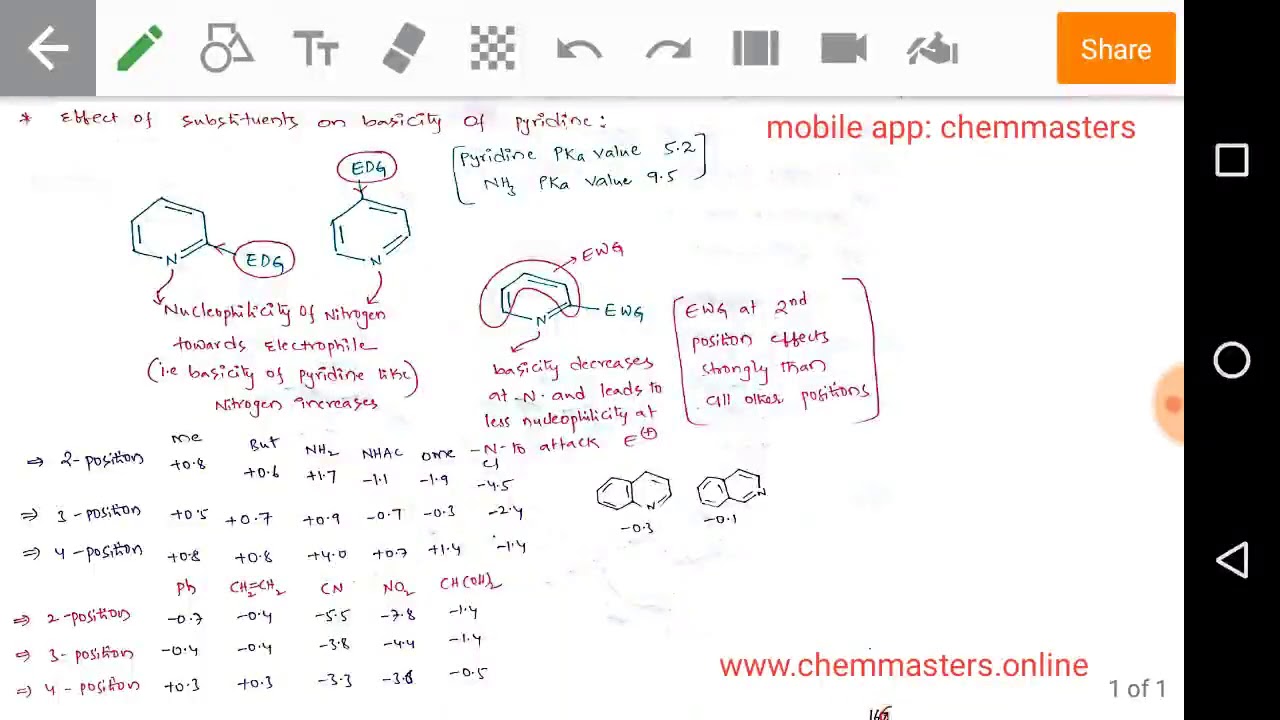 Share
* Effect of substituents on basicity of pyridine:
mobile app: chemmasters
EDG
Pyridine PKa value 5.2
NH3 PKa value 9.5
N
EDG
N
EWG
N
EWG
Nucleophilicity of Nitrogen
towards Electrophile
(i.e basicity of pyridine like)
Nitrogen increases
basicity decreases
at -N- and leads to
less nucleophilicity at
-N- to attack E⊕
EWG at 2nd
position effects
strongly than
all other positions
Me But NH2 NHAC OMe Cl
⇒ 2-position +0.8 +0.6 +1.7 -1.1 -1.9 -4.5
⇒ 3-position +0.5 +0.7 +0.9 -0.7 -0.3 -2.4
⇒ 4-position +0.8 +0.8 +4.0 +0.7 +1.4 -1.4
N
-0.3
N
-0.1
Ph CH2=CH2 CN NO2 CH(OH)2
⇒ 2-position -0.7 -0.4 -5.5 -7.8 -1.4
⇒ 3-position -0.4 -0.4 -3.8 -4.4 -1.4
⇒ 4-position +0.3 +0.3 -3.3 -3.8 -0.5
www.chemmasters.online
1 of 1